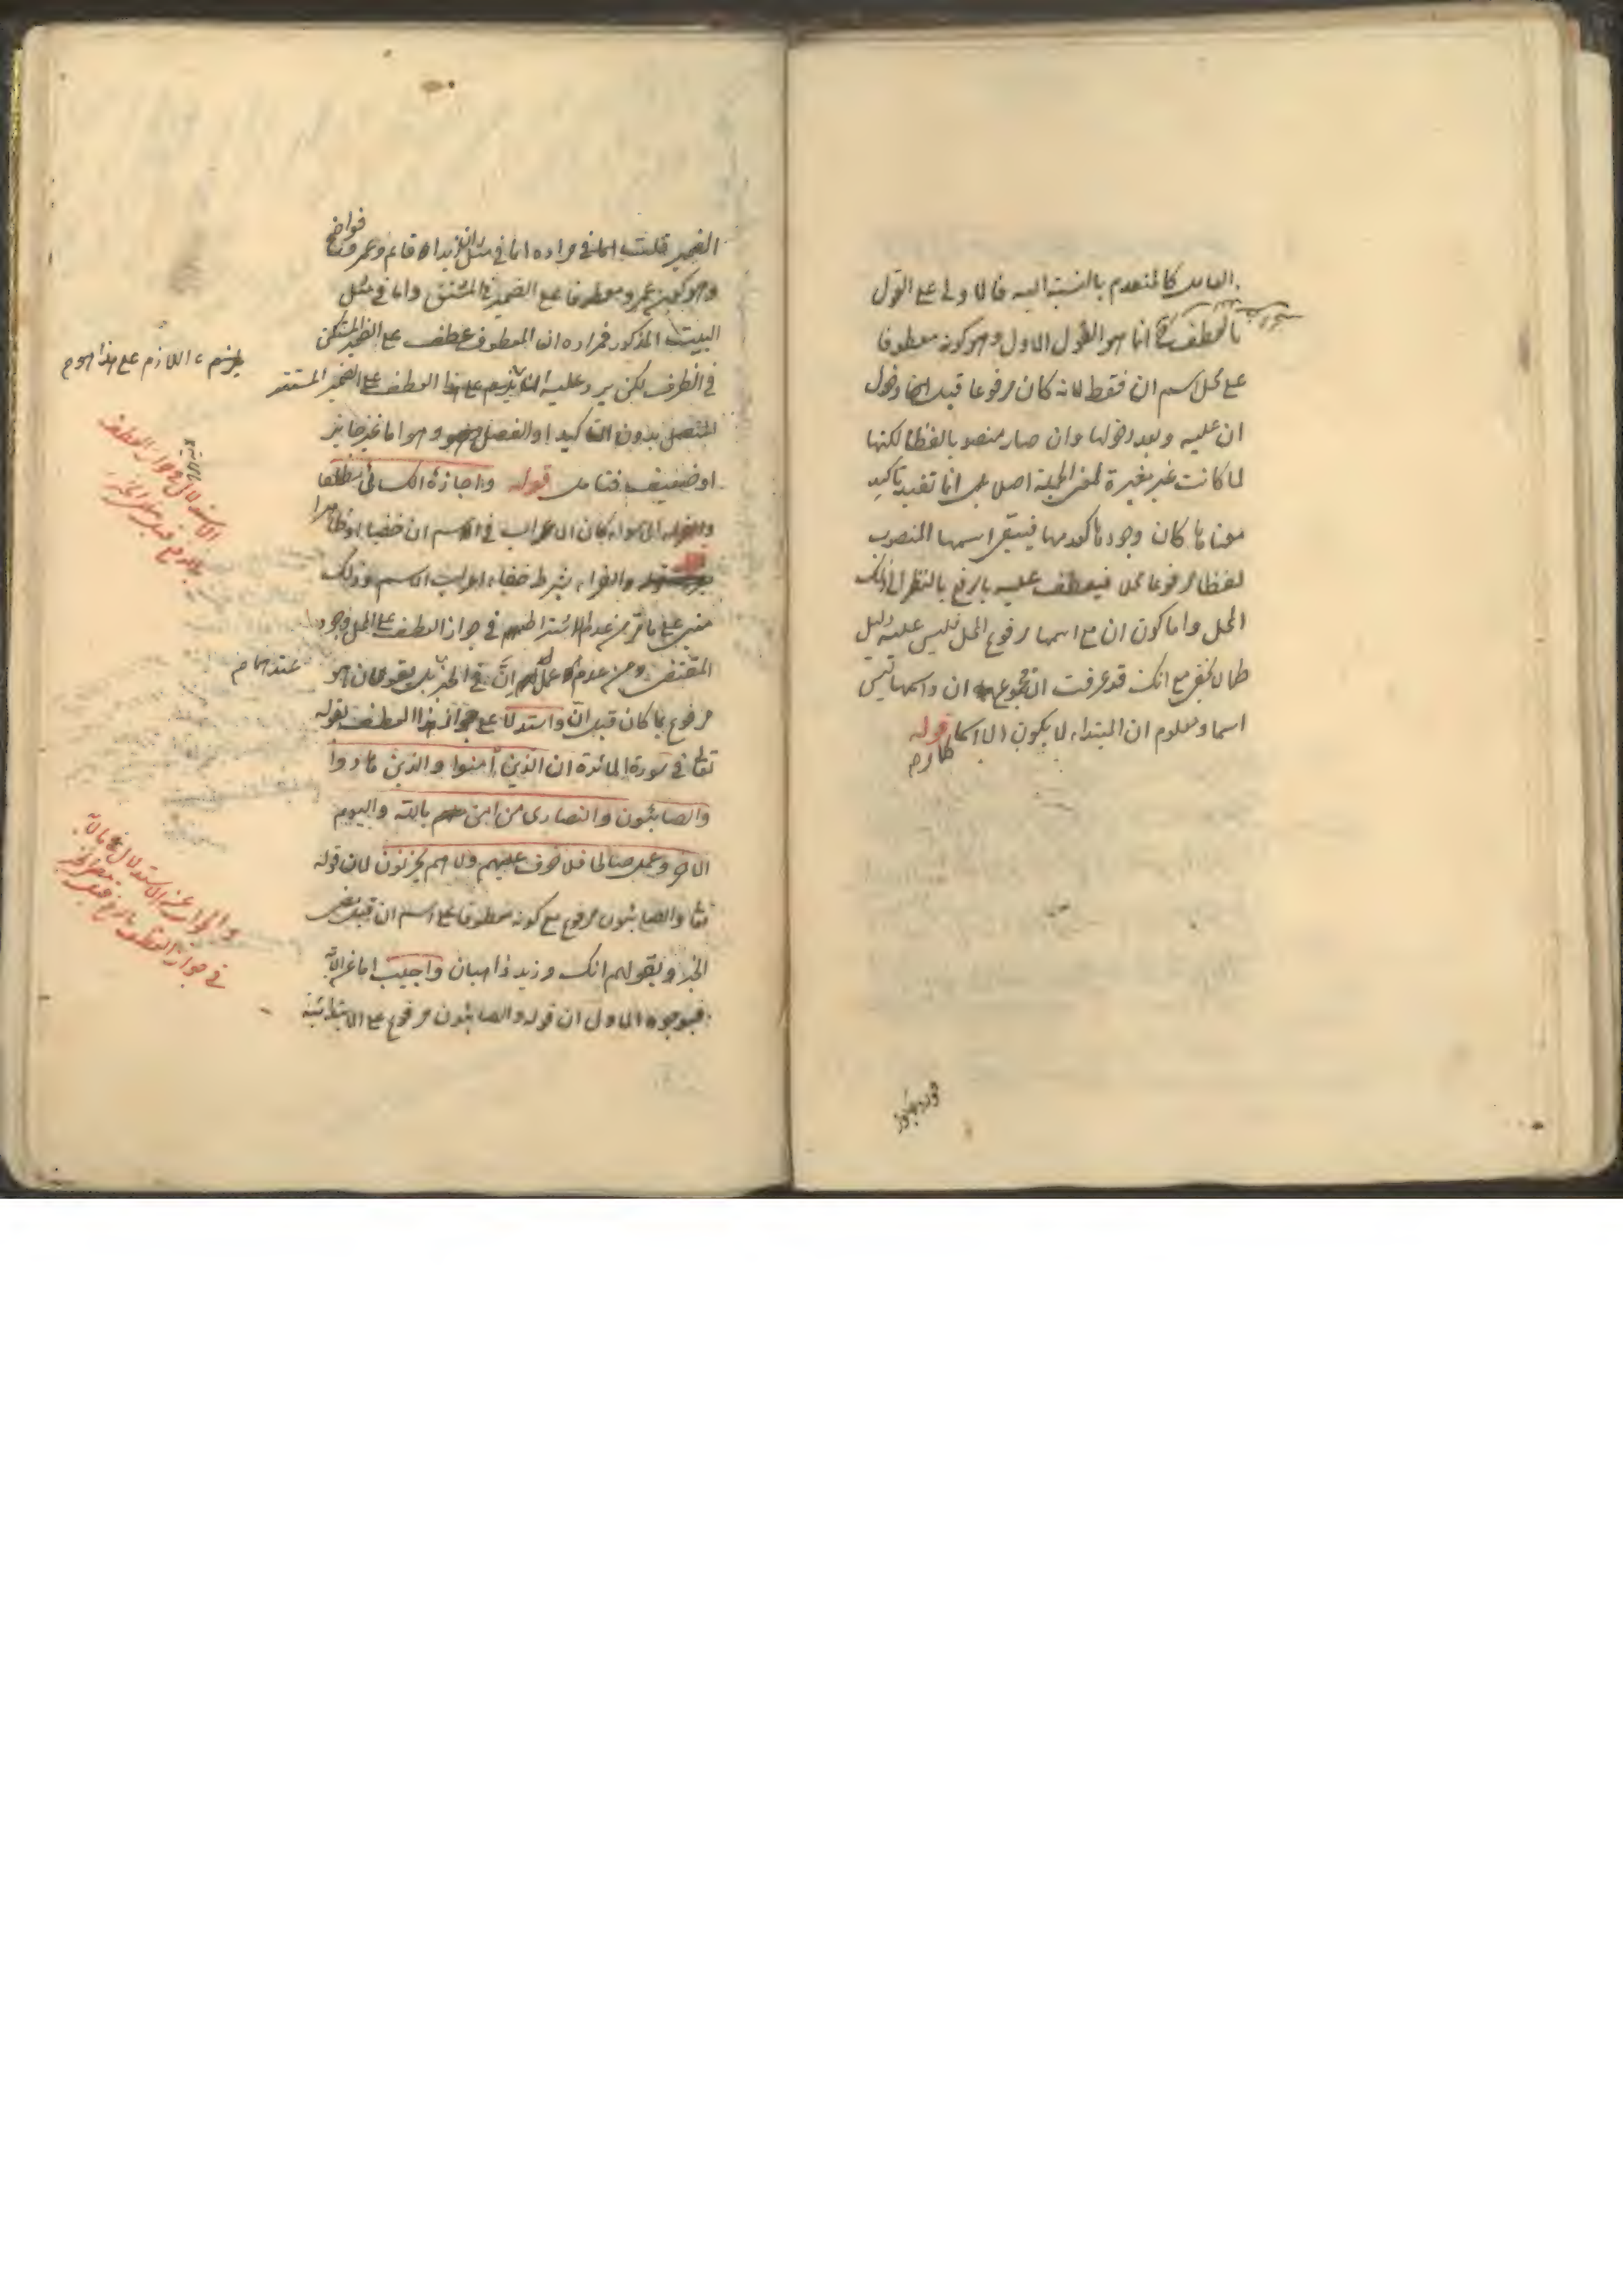 العامل كالمنعدم بالنسبة اليه فالاولى على القول
بالعطف انما هو القول الاول وهو كونه معطوفا
على محل اسم ان فقط لانه كان مرفوعا قبل دخول
ان عليه وبعد دخولها وان صار منصوبا لفظا لكنها
لما كانت غير مغيرة لمعنى الجملة اصلا بل انما تفيد تاكيد
معناها كان وجودها كعدمها فيبقى اسمها المنصوب
لفظا مرفوعا محلا فيعطف عليه بالرفع بالنظر الى ذلك
المحل واما كون ان مع اسمها مرفوع المحل فليس عليه دليل
كما لا يخفى مع انك قد عرفت ان مجموع ان واسمها ليس
اسما ومعلوم ان المبتداء لا يكون الا اسما قوله
الضمير قلت اما في مراده اما في مثل ان زيدا قائم وعمرو فواضح
وهو كون عمرو معطوفا على الضمير في المشتق واما في مثل
البيت المذكور فمراده ان المعطوف عطف على الضمير المتمكن
في الظرف لكن يرد عليه انه يلزم على هذا العطف على الضمير المستتر
المتصل بدون التاكيد او الفصل وهو اما غير جايز
او ضعيف فتامل قوله واجازة الكسائي مطلقا
اى سواء كان الاعراب في الاسم ان خفيا او ظاهرا
والفراء بشرط خفاء اعراب الاسم وذلك
مبني على ما مر من عدم اشتراطهم في جواز العطف على المحل وجود
المقتضى ومن عدم عمل ان في الخبر بل يقولون هو
عندهما م
مرفوع بما كان قبل ان واستدلا على جواز هذا العطف بقوله
تعالى في سورة المائدة ان الذين آمنوا والذين هادوا
والصابئون والنصارى من امن بالله واليوم
الاخر وعمل صالحا فلا خوف عليهم ولا هم يحزنون لان قوله
تعالى والصابئون مرفوع مع كونه معطوفا على اسم ان قبل مضى
الخبر وبقولهم انك وزيد ذاهبان واجيب اما عن الاية
فبوجوه الاول ان قوله والصابئون مرفوع على الابتدائية
يلزم اللازم على هذا
والجواب عن الاستدلال
في جواز العطف بالرفع قبل مضى الخبر